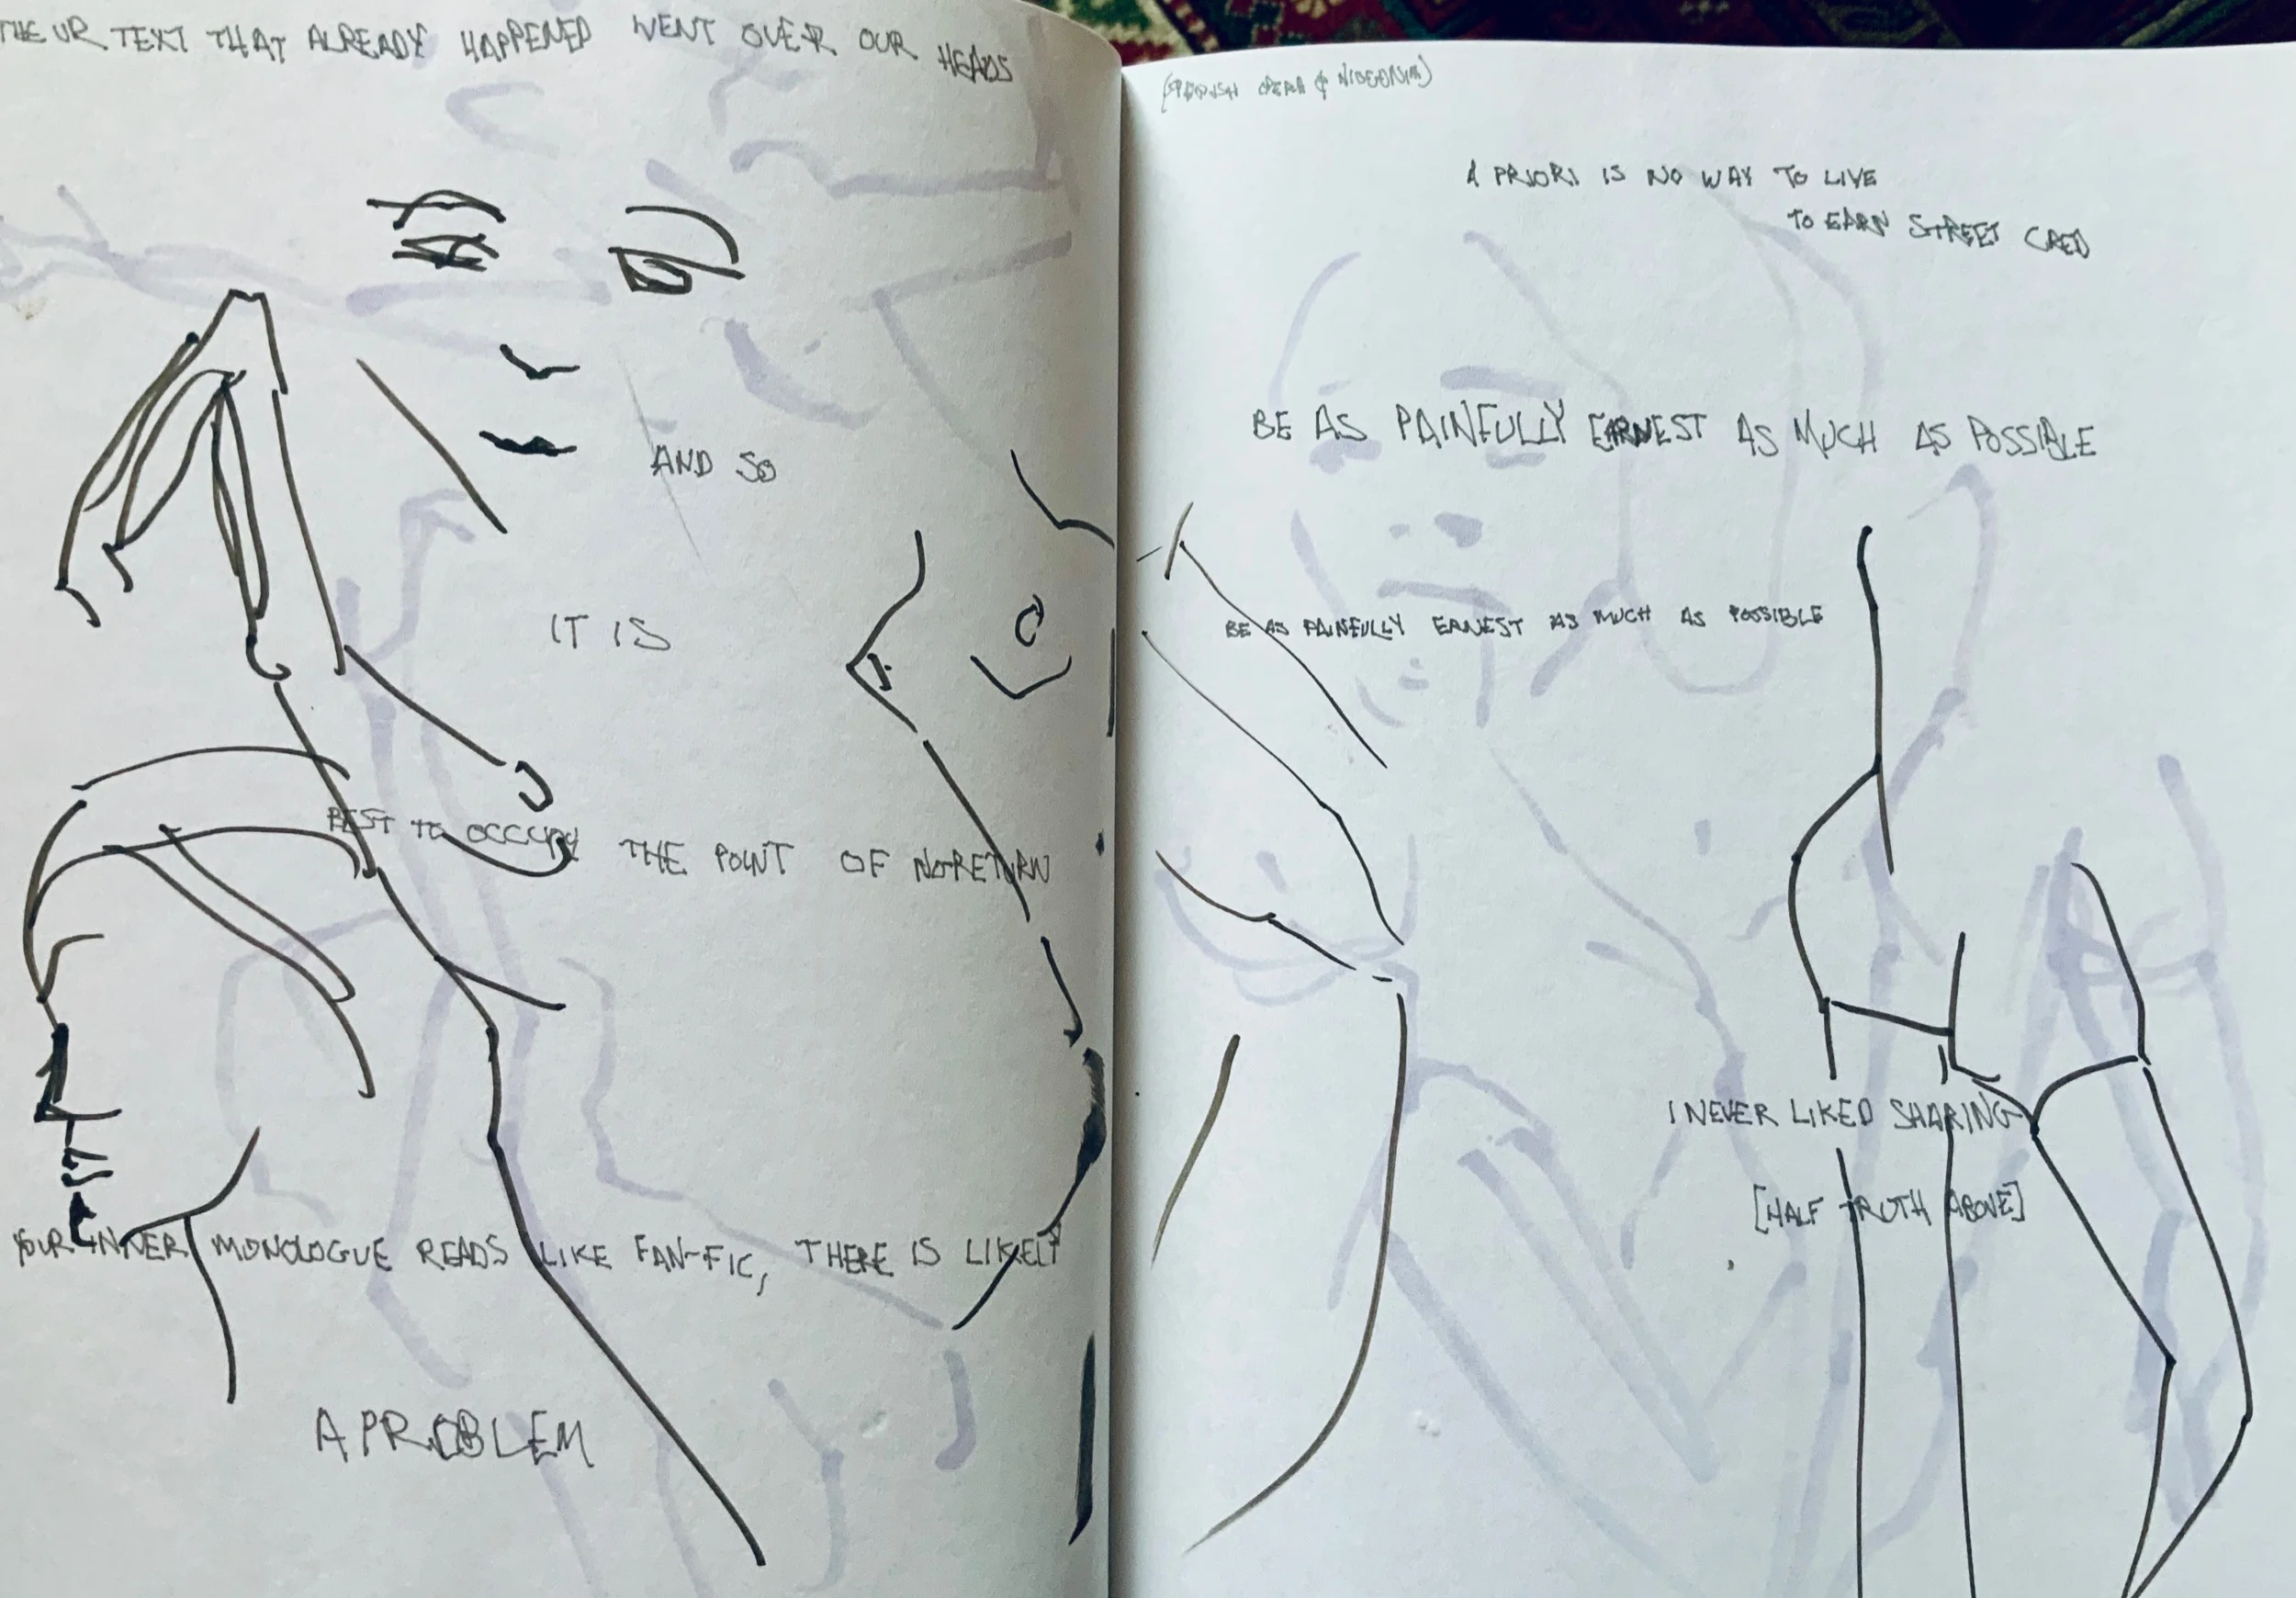 THE UR TEXT THAT ALREADY HAPPENED WENT OVER OUR HEADS
AND SO
IT IS
BEST TO OCCUPY THE POINT OF NO RETURN
YOUR INNER MONOLOGUE READS LIKE FAN-FIC, THERE IS LIKELY
A PROBLEM
A PRIORI IS NO WAY TO LIVE
TO EARN STREET CRED
BE AS PAINFULLY EARNEST AS MUCH AS POSSIBLE
BE AS PAINFULLY EARNEST AS MUCH AS POSSIBLE
I NEVER LIKED SHARING
[HALF TRUTH ABOVE]